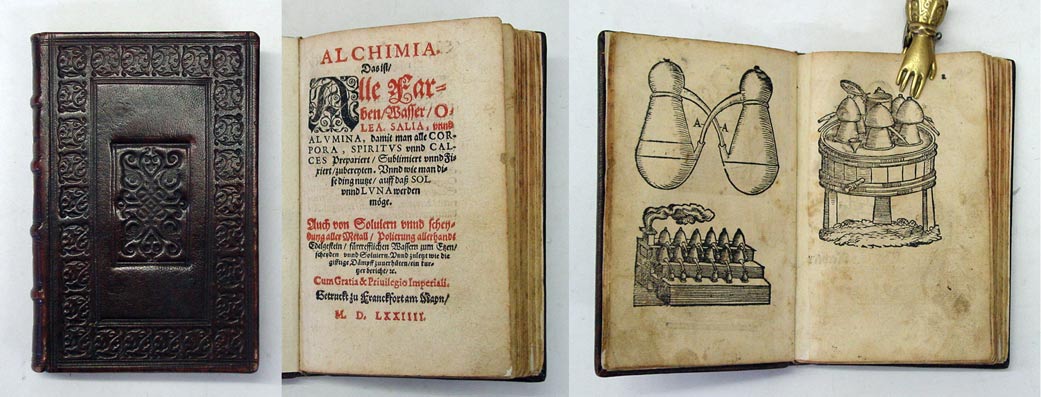 ALCHIMIA.
Das ist/
Alle Far=
ben/Wasser/O-
LEA, SALIA, vnnd
ALVMINA, damit man alle COR-
PORA, SPIRITVS vnnd CAL-
CES Prepariert/Sublimiert vnnd Fi-
xiert/zubereyten. Vnnd wie man di-
se ding nutze/auff daß SOL
vnnd LVNA werden
möge.
Auch von Soluiern vnnd schey-
dung aller Metall/Polierung allerhandt
Edelgestein/fürtrefflichen Wassern zum Etzen/
scheyden vnnd Soluiern. Vnnd zuletzt wie die
gifftige Dämpff zuuerhüten/ein kur-
tzer bericht/ꝛc.
Cum Gratia & Priuilegio Imperiali.
Getruckt zu Franckfort am Mayn/
M. D. LXXIIII.
A A